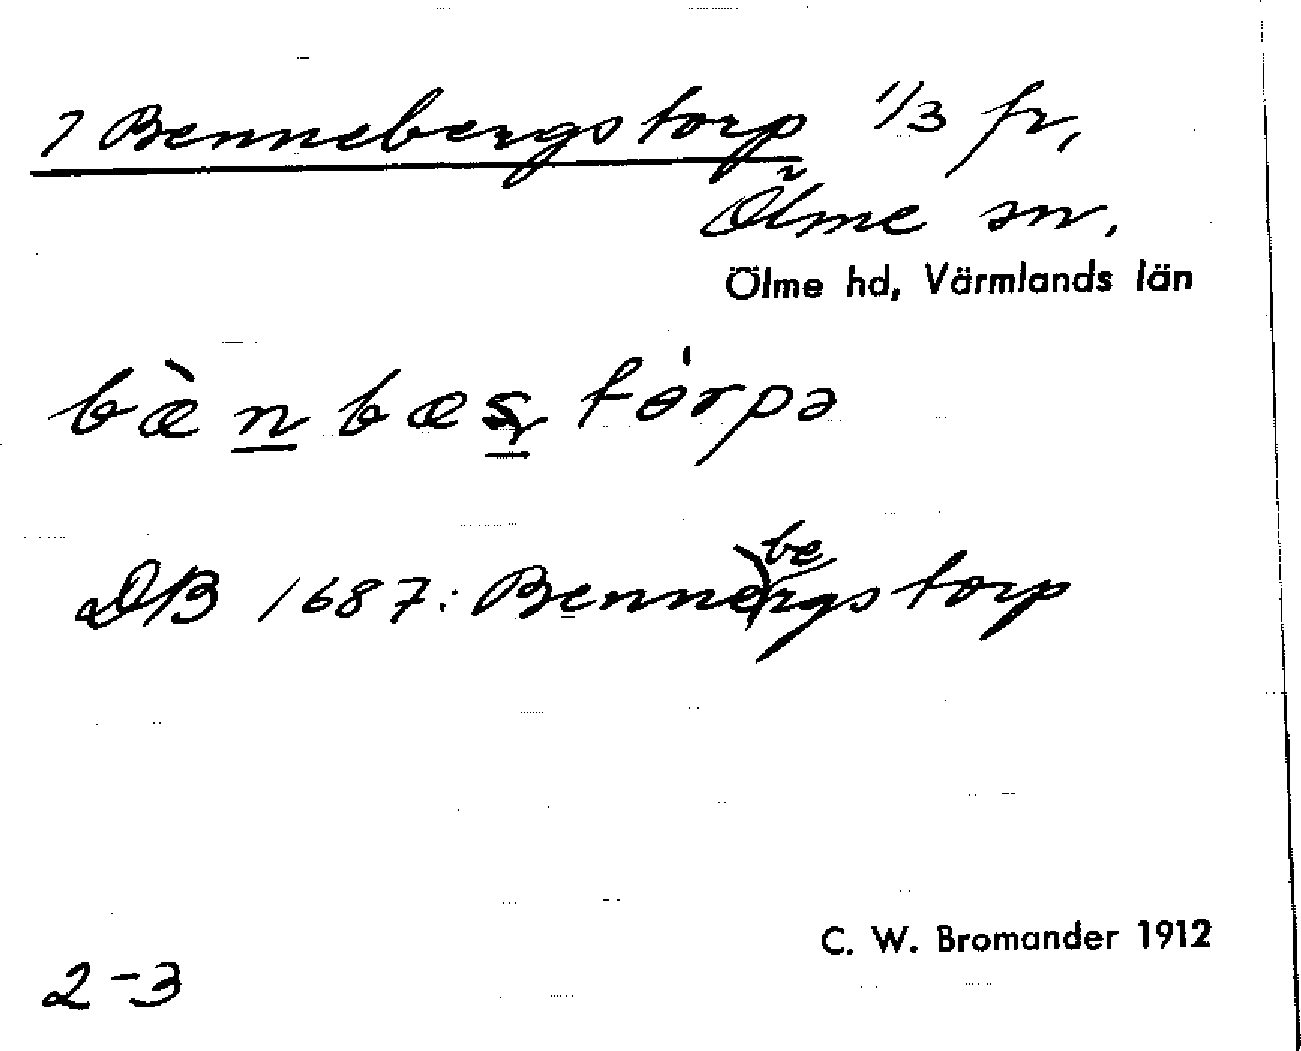 7 Bennebergstorp 1/3 fr,
Ölme sn.
Ölme hd, Värmlands län
bæ̀n bæs tɵ́rpə
DB 1687: Bennebergstorp
C. W. Bromander 1912
2-3